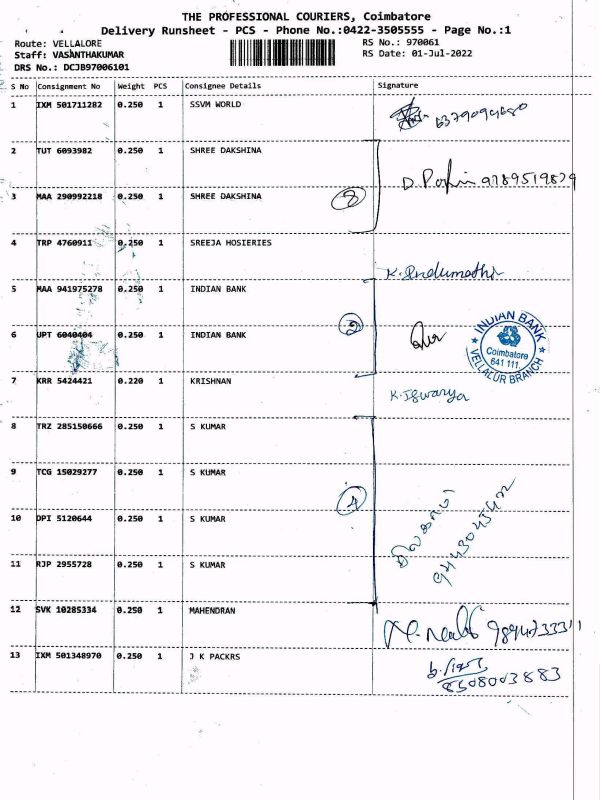 THE PROFESSIONAL COURIERS, Coimbatore
Delivery Runsheet - PCS - Phone No.:0422-3505555 - Page No.:1
Route: VELLALORE RS No.: 970061
Staff: VASANTHAKUMAR RS Date: 01-Jul-2022
DRS No.: DCJB97006101
S No Consignment No Weight PCS Consignee Details Signature
1 IXM 501711282 0.250 1 SSVM WORLD
2 TUT 6093982 0.250 1 SHREE DAKSHINA
D. 9789519829
3 MAA 290992218 0.250 1 SHREE DAKSHINA 2
4 TRP 4760911 0.250 1 SREEJA HOSIERIES
K. Indumathi
5 MAA 941975278 0.250 1 INDIAN BANK
2
6 UPT 6040404 0.250 1 INDIAN BANK
INDIAN BANK
Coimbatore
641 111
VELLALUR BRANCH
7 KRR 5424421 0.220 1 KRISHNAN
K. Iswarya
8 TRZ 285150666 0.250 1 S KUMAR
9 TCG 15029277 0.250 1 S KUMAR
4
10 DPI 5120644 0.250 1 S KUMAR
திலகாமா
11 RJP 2955728 0.250 1 S KUMAR
12 SVK 10285334 0.250 1 MAHENDRAN
13 IXM 501348970 0.250 1 J K PACKRS
8508003883